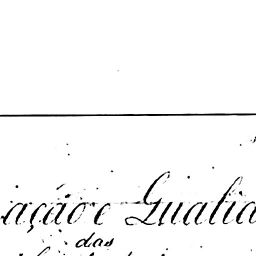 iação e Qualid
das